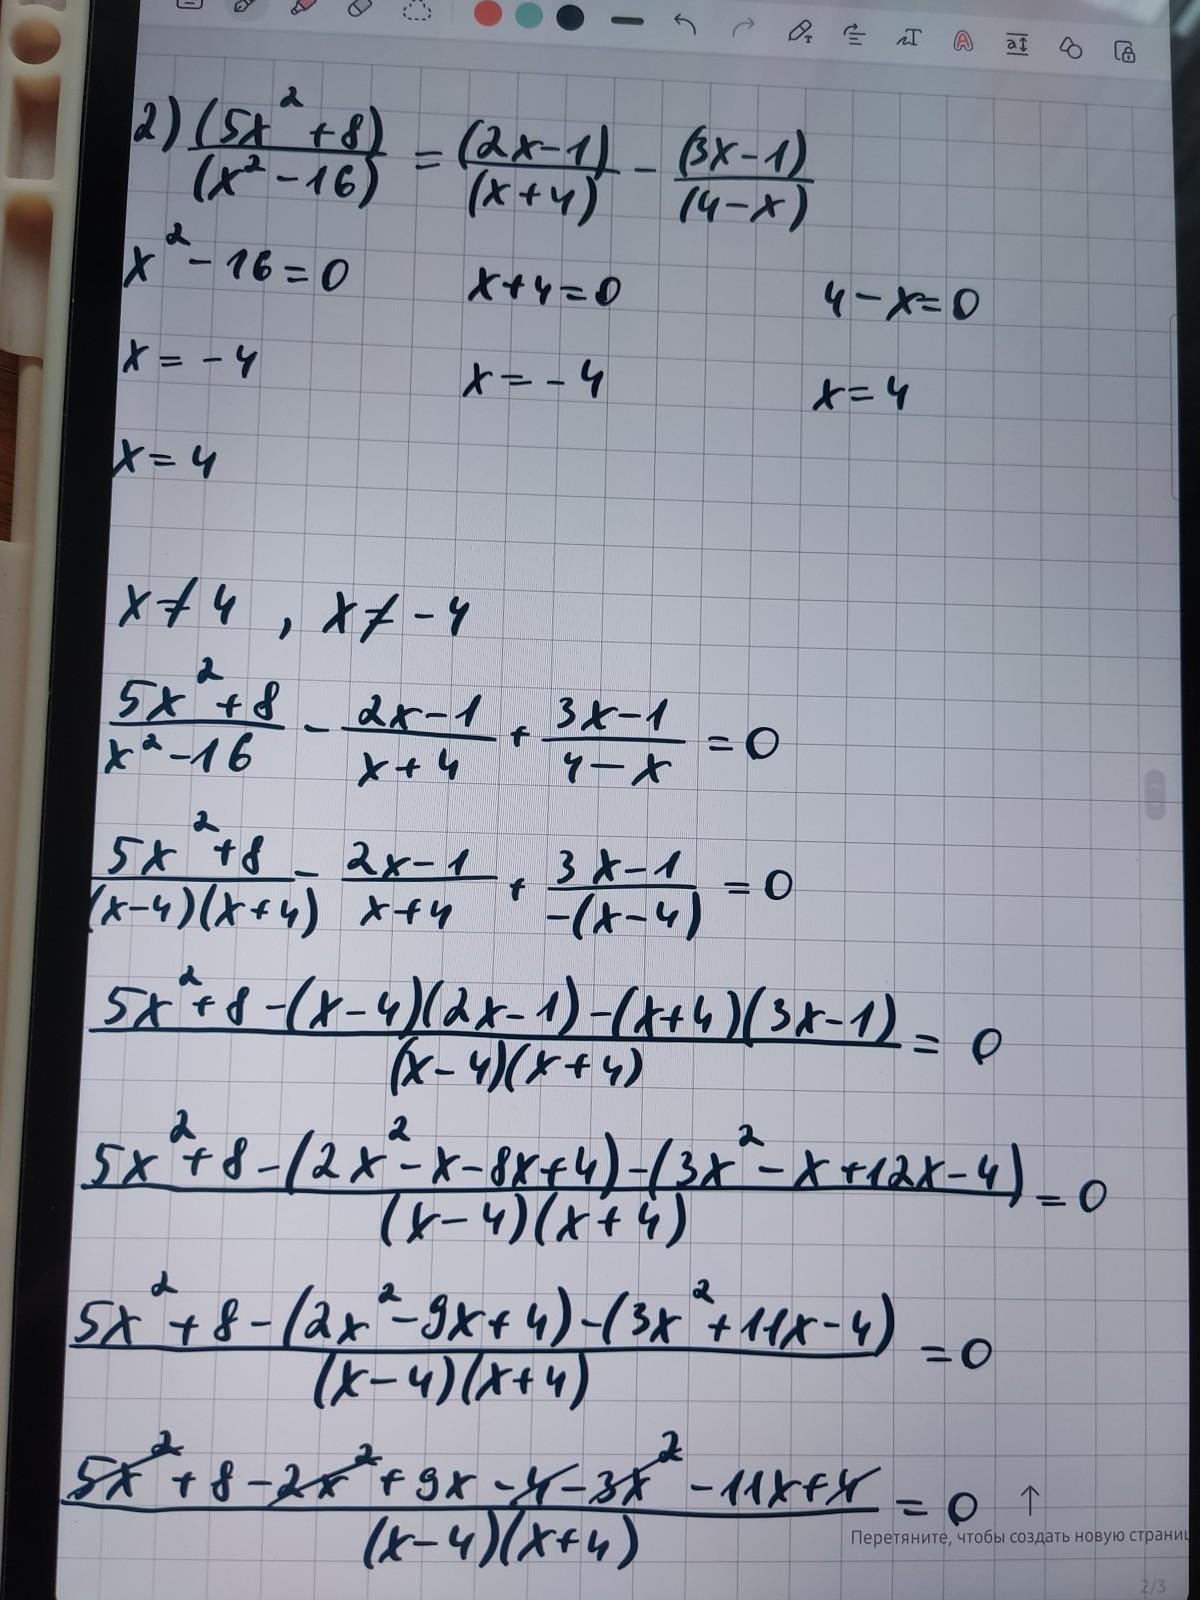 2) (5x² + 8)/(x² - 16) = (2x - 1)/(x + 4) - (3x - 1)/(4 - x)
x² - 16 = 0    x + 4 = 0    4 - x = 0
x = - 4    x = - 4    x = 4
x = 4
x ≠ 4 , x ≠ - 4
5x² + 8/x² - 16 - 2x - 1/x + 4 + 3x - 1/4 - x = 0
5x² + 8/(x - 4)(x + 4) - 2x - 1/x + 4 + 3x - 1/-(x - 4) = 0
5x² + 8 - (x - 4)(2x - 1) - (x + 4)(3x - 1)/(x - 4)(x + 4) = 0
5x² + 8 - (2x² - x - 8x + 4) - (3x² - x + 12x - 4)/(x - 4)(x + 4) = 0
5x² + 8 - (2x² - 9x + 4) - (3x² + 11x - 4)/(x - 4)(x + 4) = 0
5x² + 8 - 2x² + 9x - 4 - 3x² - 11x + 4/(x - 4)(x + 4) = 0 ↑
Перетяните, чтобы создать новую страниц
2/3